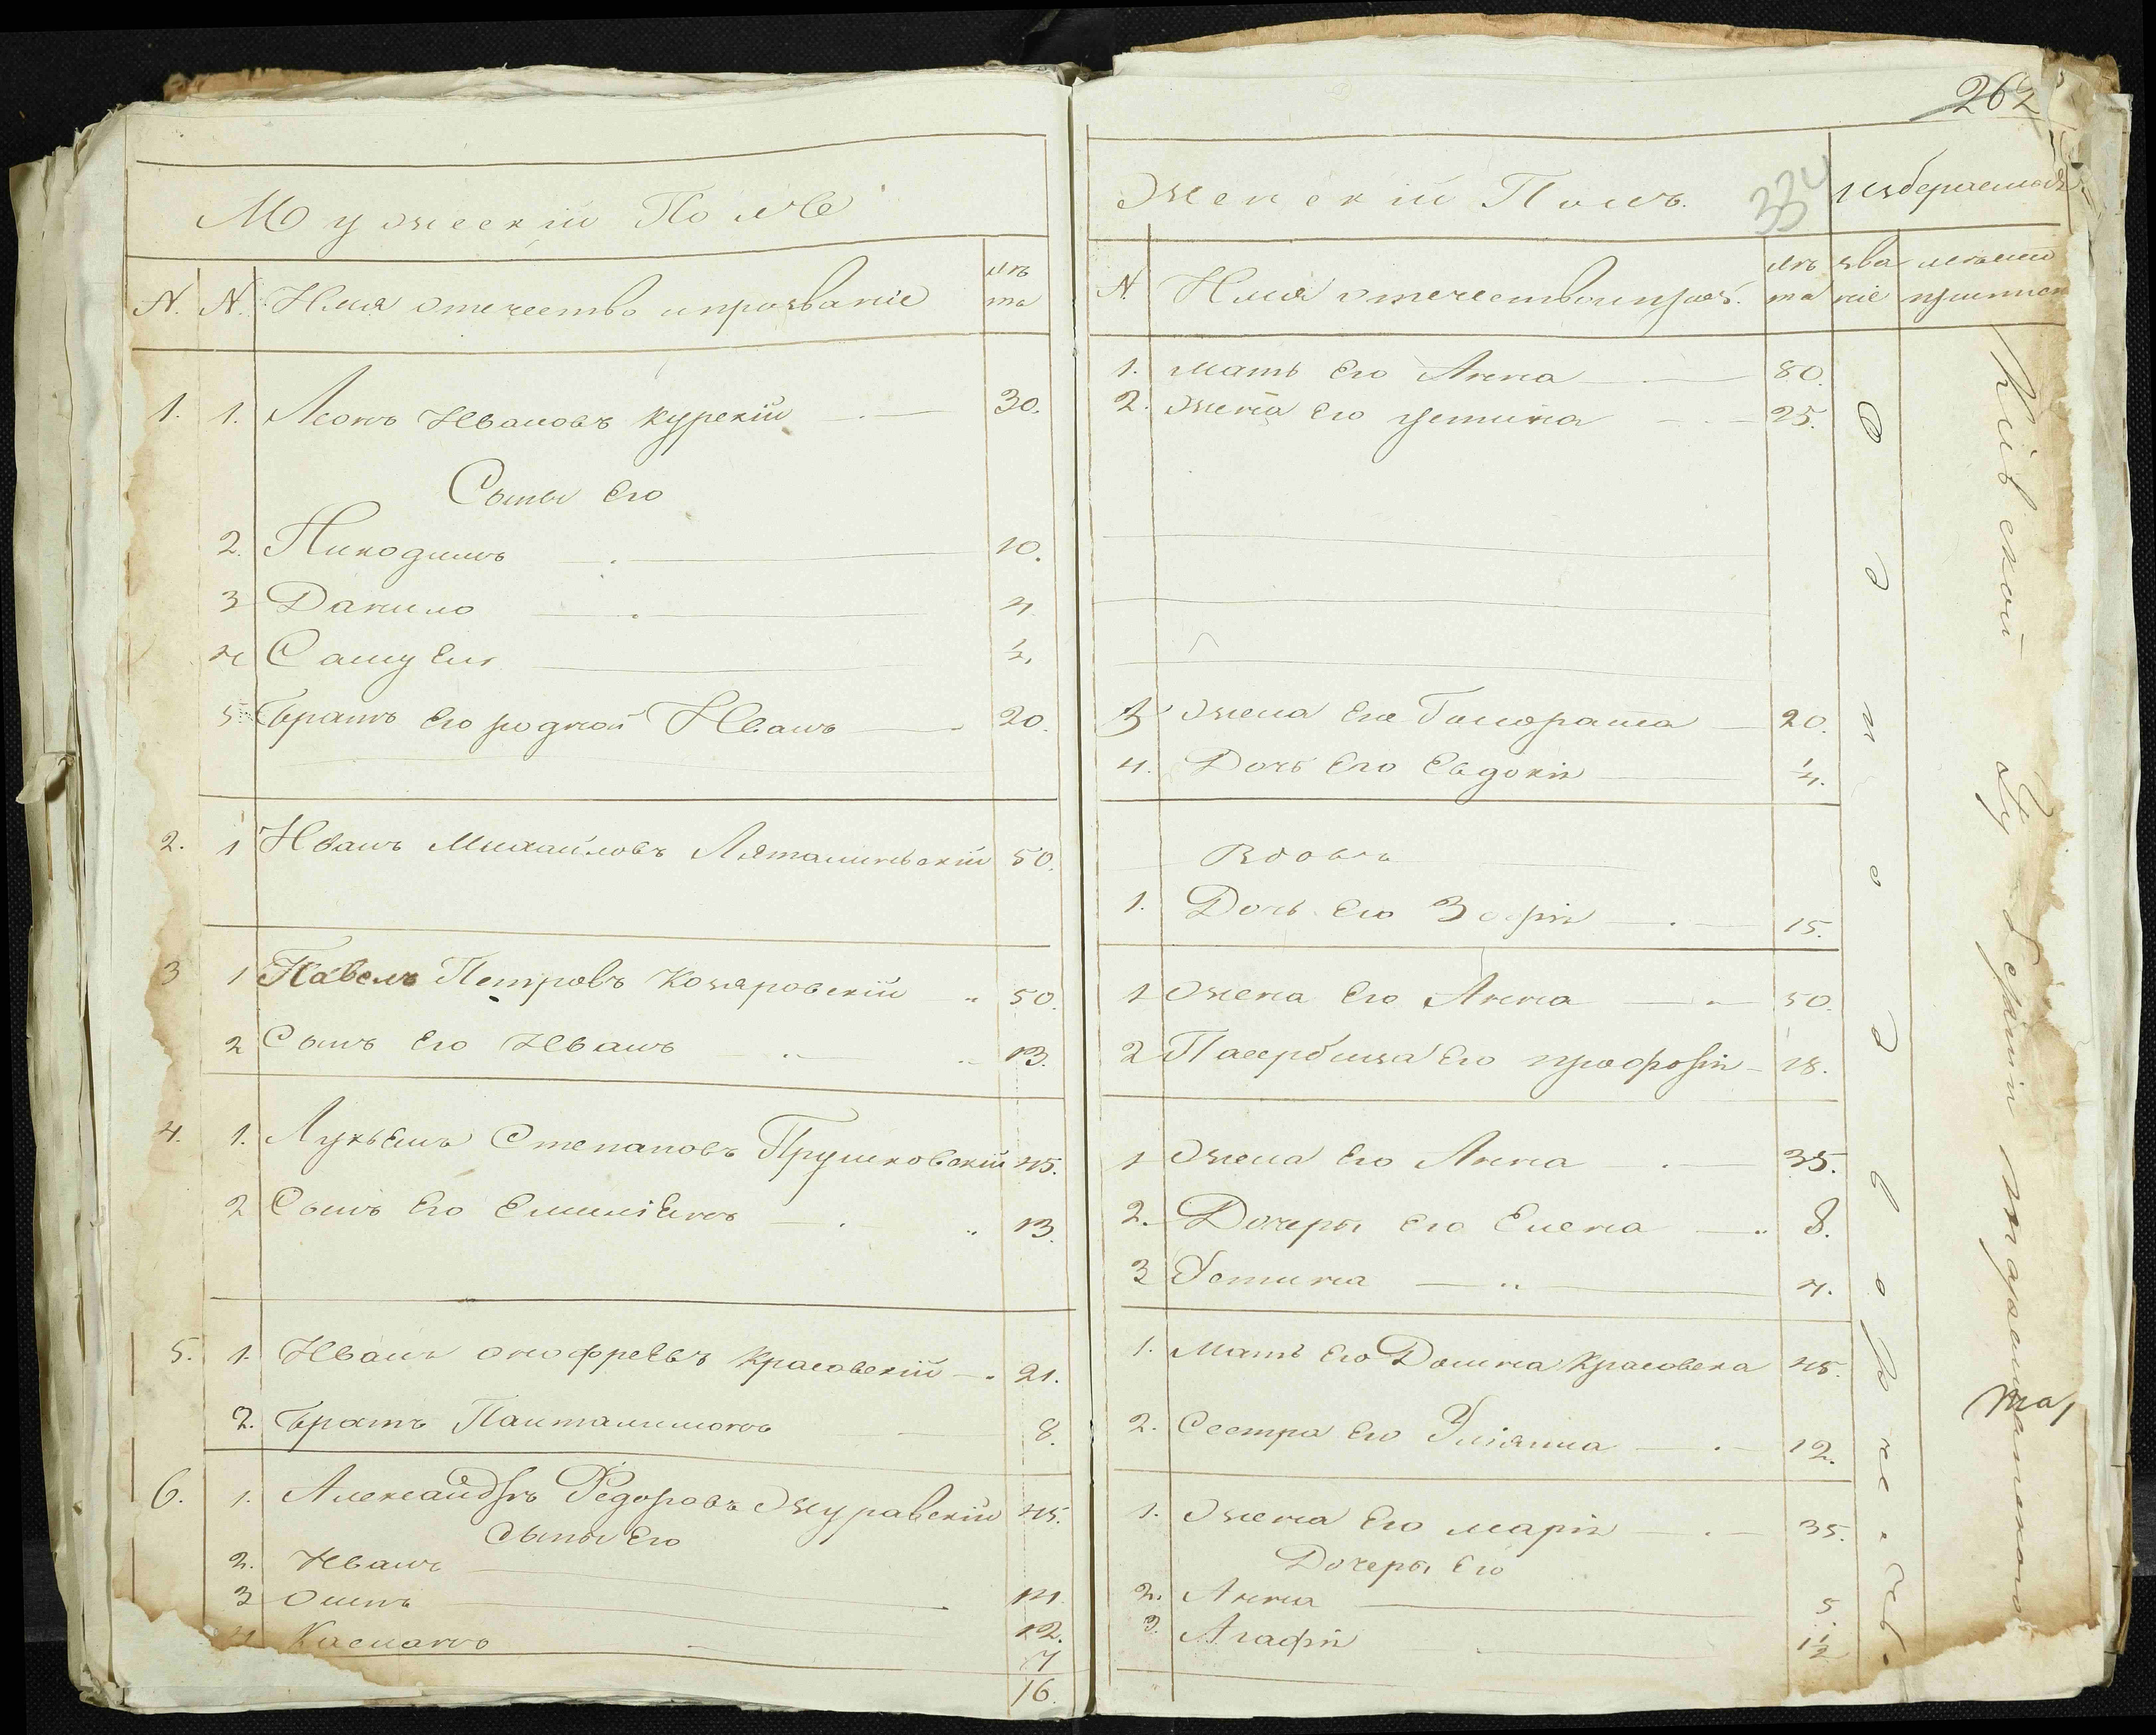 Мужескій Полъ
N. N. Имя отечество и прозваніе лѣ та
1. 1. Леонъ Ивановъ Курскій 30.
Сыны Его
2. Никодимъ 10.
3 Данило 4
4 Самуил ½
5. братъ Его родной Иванъ 20.
2. 1 Иванъ Михайловъ 50.
3 1 Павелъ Петровъ Комаровскій 50.
2 Сынъ Его Иванъ 13.
4. 1. Лукьянъ Степановъ Прушковскій 45.
2 Сынъ Его Емиліянъ 13.
5. 1. Иванъ Онофреевъ Красовскій 21.
2. братъ Панталимонъ 8.
6. 1. Александръ Федоровъ Журавскій 45.
Сыны Его
2. Иванъ
3 Осипъ 14
4 Касианъ 12.
7
16.
262
334
Женскій Полъ. избераемая
N. Имя отечество и проз. лѣ та зва ніе
1. Мать Его Анна 80.
2. Жена Его Устина 25.
3 Жена Его 20.
4. Дочь Его Евдокія ¼.
Вдовъ
1. Дочь Его Зофія 15.
1 Жена Его Анна 50.
2 Пасербица Его 18.
1 Жена Его Анна 35.
2. Дочеры Его Елена 8.
3 Устина 4.
1. Мать Его Домна Красовска 45.
2. Сестра Его Уліянна 12.
1. Жена Его Марія 35.
Дочеры Его
2. Анна 5.
3. Агафія 1½
Кіевской